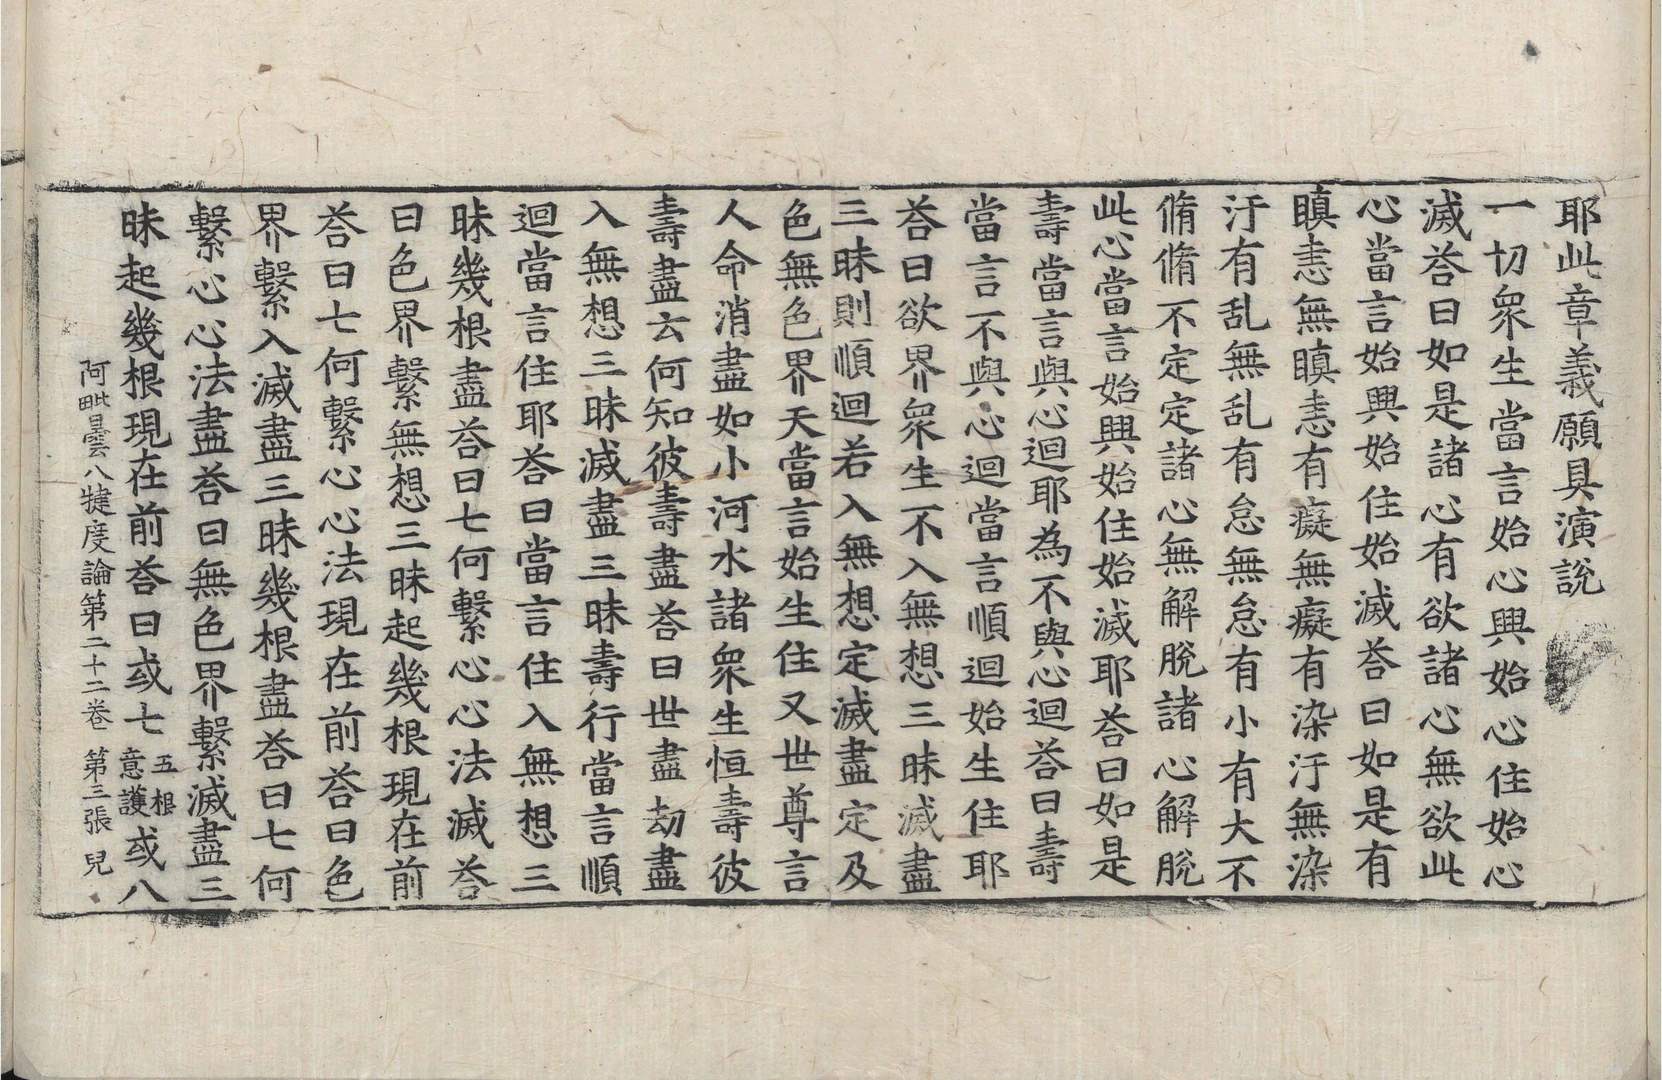 耶此章義願具演說
一切衆生當言始心興始心住始心
滅荅曰如是諸心有欲諸心無欲此
心當言始興始住始滅荅曰如是有
瞋恚無瞋恚有癡無癡有染汙無染
汙有乱無乱有怠無怠有小有大不
脩脩不定定諸心無解脫諸心解脫
此心當言始興始住始滅耶荅曰如是
壽當言與心迴耶為不與心迴荅曰壽
當言不與心迴當言順迴始生住耶
荅曰欲界衆生不入無想三昧滅盡
三昧則順迴若入無想定滅盡定及
色無色界天當言始生住又世尊言
人命消盡如小河水諸衆生恒壽彼
壽盡云何知彼壽盡荅曰世盡劫盡
入無想三昧滅盡三昧壽行當言順
迴當言住耶荅曰當言住入無想三
昧幾根盡荅曰七何繫心心法滅荅
曰色界繫無想三昧起幾根現在前
荅曰七何繫心心法現在前荅曰色
界繫入滅盡三昧幾根盡荅曰七何
繫心心法盡荅曰無色界繫滅盡三
昧起幾根現在前荅曰或七五根意護或八
阿毗曇八揵度論第二十二卷 第三張 兒